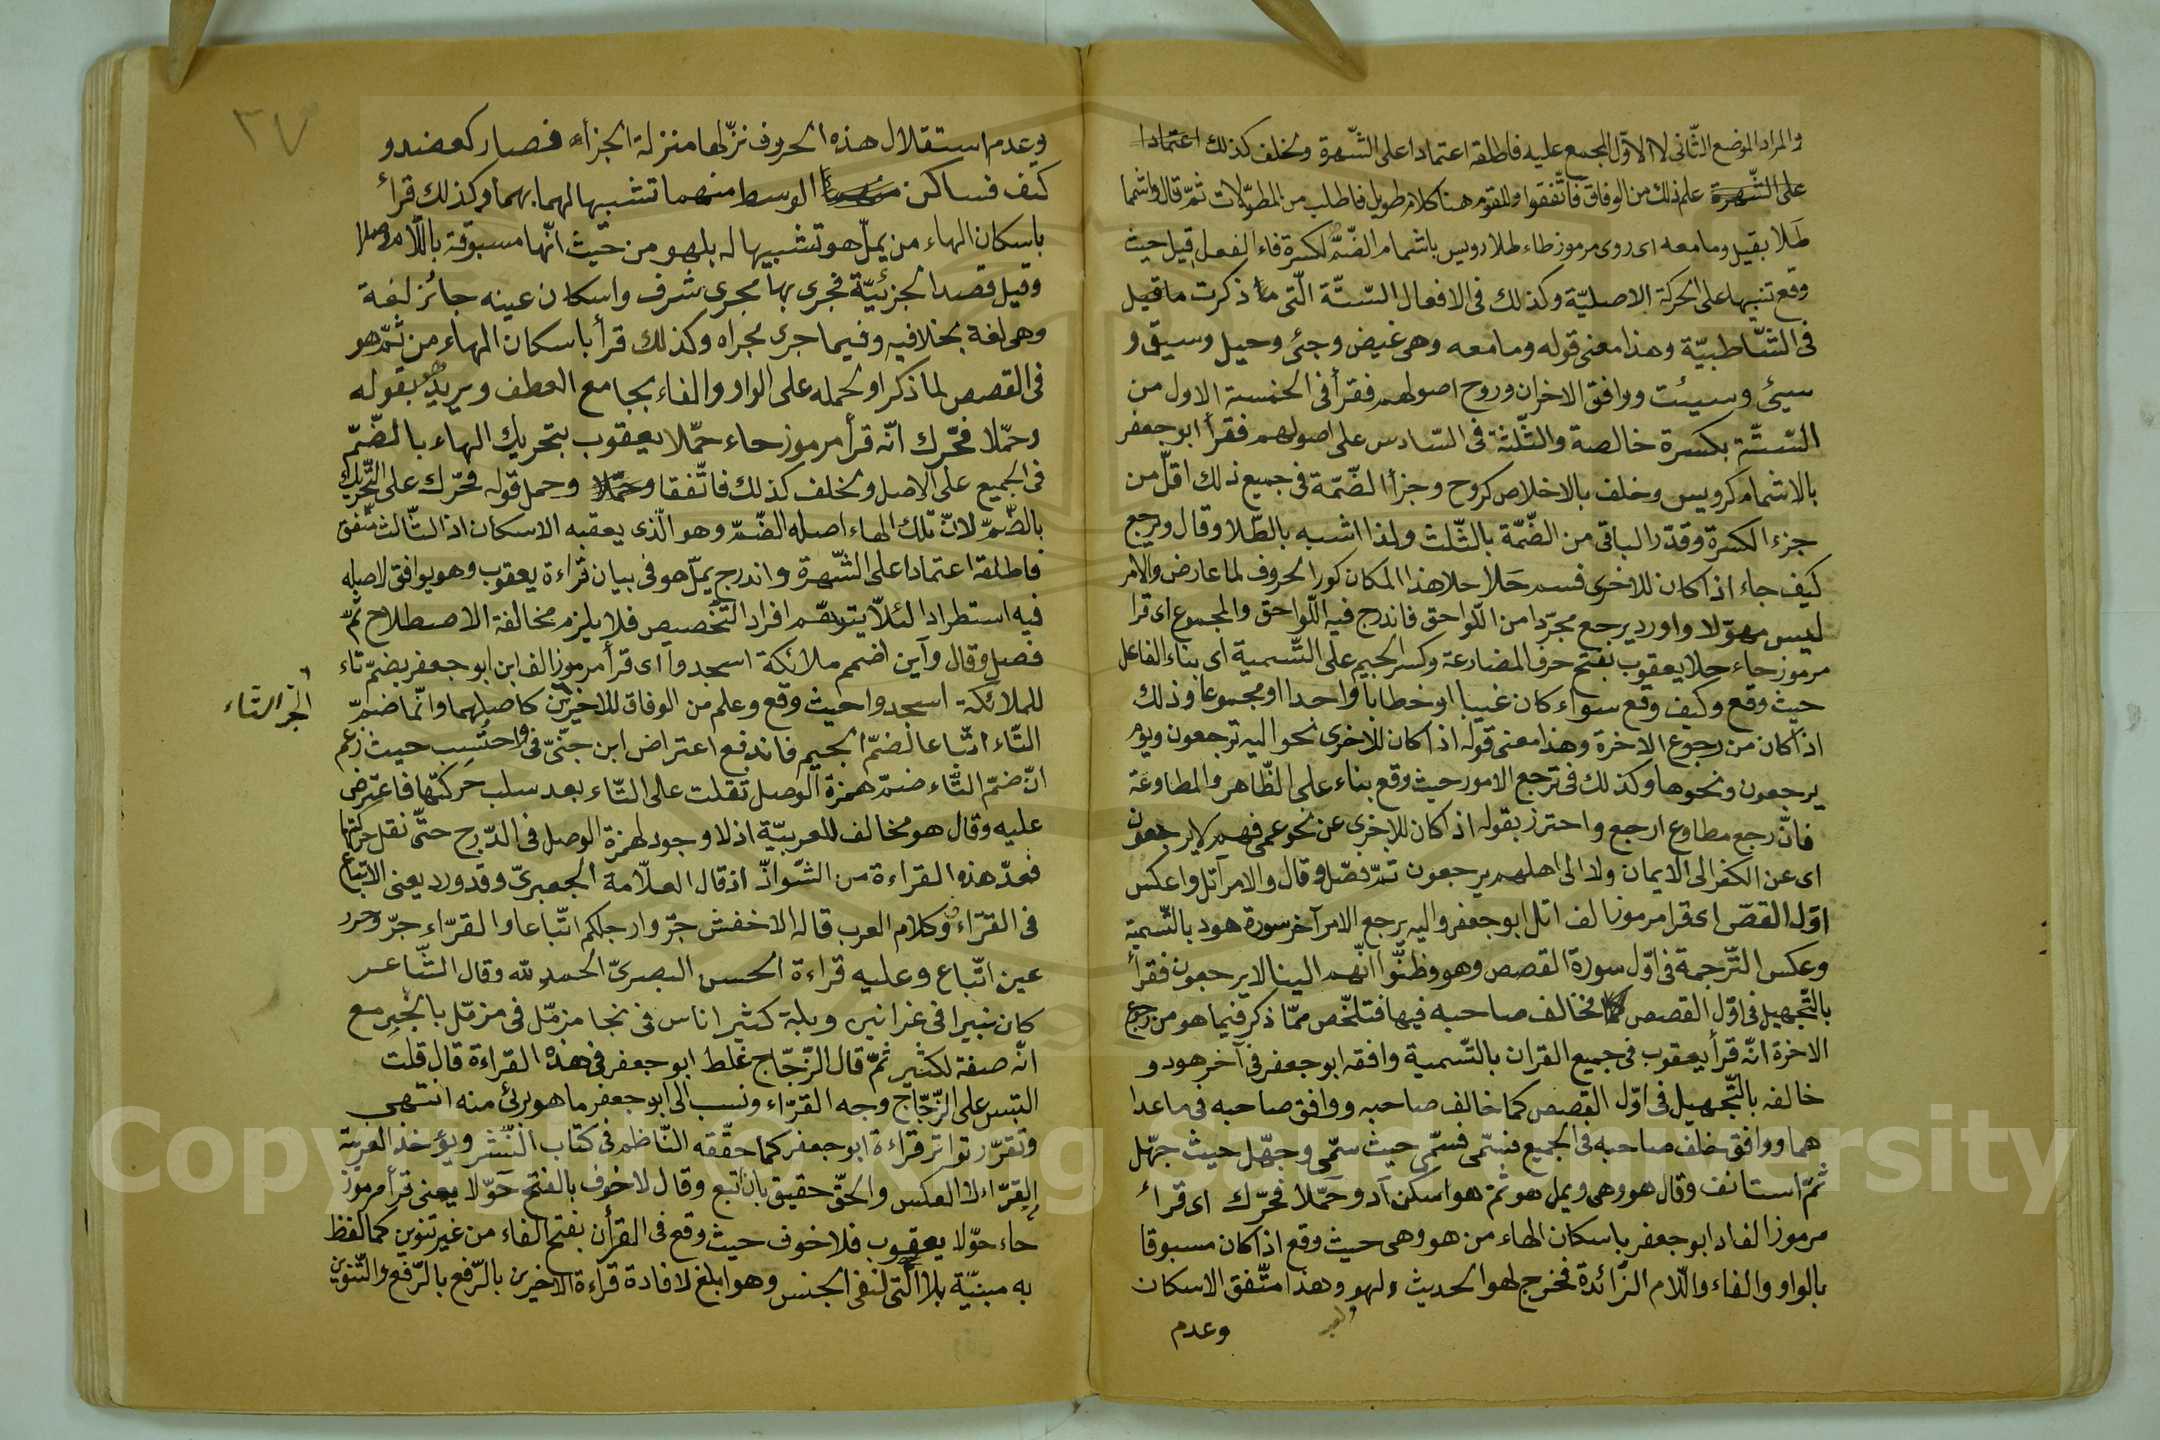 والمراد الموضع الثّانى لا الاوّل المجمع عليه فاطلقه اعتمادا على الشّهرة وخلف كذلك اعتمادا
على الشّهرة علم ذلك من الوفاق فاتّفقوا وللقوم هنا كلام طويل فاطلب من المطوّلات ثمّ قال واشما
طَلا بقيل وما معه اى روى مرموز طاء طلا رويس باشمام الضّمّ لكسرة فاء الفعل قيل حيث
وقع تنبيها على الحركة الاصليّة وكذلك فى الافعال السّتّة الّتى ذكرت مع قيل
فى الشّاطبيّة وهذا معنى قوله وما معه وهى غيض وجئ وحيل وسيق و
سيئ وسيئت ووافق الاخران وروح اصولهم فقرأ فى الخمسة الاول من
السّتّة بكسرة خالصة والثّلثة فى السّادس على اصولهم فقرأ ابو جعفر
بالاشمام كرويس وخلف بالاخلاص كروح وجزأ الضّمّة فى جميع ذلك اقلّ من
جزء الكسرة وقدّر الباقى من الضّمّة بالثّلث ولذا اشبه بالطّلا وقال ويرجع
كيف جاء اذا كان للاخرى فسم حَلا حلا هذا المكان كور الحروف لما عارض والامر
ليس مهوّلا واورد يرجع مجرّدا من اللّواحق فاندرج فيه اللّواحق والمجموع اى قرا
مرموز حاء حلا يعقوب بفتح حرف المضارعة وكسر الجيم على التّسمية اى بناء الفاعل
حيث وقع وكيف وقع سواء كان غيبا او خطابا واحدا او مجموعا وذلك
اذا كان من رجوع الاخرة وهذا معنى قوله اذا كان للاخرى نحو اليه ترجعون ويوم
يرجعون ونحوها وكذلك فى ترجع الامور حيث وقع بناء على الظّاهر والمطاوعة
فانّ رجع مطاوع ارجع واحترز بقوله اذا كان للاخرى عن نحو عمى فهم لا يرجعون
اى عن الكفر الى الايمان ولا الى اهلهم يرجعون ثمّ فصّل وقال والامر اتل واعكس
اوّل القصّ اى قرا مرموز الف اتل ابو جعفر واليه يرجع الامر آخر سورة هود بالتّسمية
وعكس التّرجمة فى اوّل سورة القصص وهو وظنّوا انّهم الينا لا يرجعون فقرأ
بالتّجهيل فى اوّل القصص مخالف صاحبه فيها فتلخّص ممّا ذكر فيما هو من رجوع
الاخرة انّه قرأ يعقوب فى جميع القران بالتّسمية وافقه ابو جعفر فى آخر هود و
خالفه بالتّجهيل فى اوّل القصص كما خالف صاحبه ووافق صاحبه فى ما عدا
هما ووافق خلف صاحبه فى الجميع فسمّى فسمّى حيث سمّى وجهّل حيث جهّل
ثمّ استانف وقال هو وهى ويمل هو ثمّ هو اسكن اد وحمّلا فحرّك اى قراء
مرموز الف اد ابو جعفر باسكان الهاء من هو وهى حيث وقع اذا كان مسبوقا
بالواو والفاء واللّام الزّائدة فخرج لهو الحديث ولهو وهذا متّفق الاسكان
وعدم
٣٧
وعدم استقلال هذه الحروف نزّلها منزلة الجزأ فصار كعضد و
كتف فساكن الوسط منهما تشبيها لهما بهما وكذلك قرأ
باسكان الهاء من يملّ هو تشبيها له بلهو من حيث انّها مسبوقة باللّام وصلا
وقيل قصد الجزئيّة فجرى بها مجرى شرف واسكان عينه جائز لغة
وهى لغة بخلافيه وفيما جرى مجراه وكذلك قرأ باسكان الهاء من ثمّ هو
فى القصص لما ذكر او لحمله على الواو والفاء بجامع العطف ويريد بقوله
وحمّلا فحّرك انّه قرأ مرموز حاء حمّلا يعقوب بتحريك الهاء بالضّمّ
فى الجميع على الاصل وخلف كذلك فاتّفقا وحمل قوله فحرّك على التّحريك
بالضّمّ لانّ تلك الهاء اصله الضّمّ وهو الّذى يعقبه الاسكان اذ الثّالث متّفق
فاطلقه اعتمادا على الشّهرة واندرج يملّ هو فى بيان قراءة يعقوب وهو يوافق لاصله
فيه استطرادا لئلّا يتوهّم افراد التّخصيص فلا يلزم مخالفة الاصطلاح ثمّ
فصل وقال وآين اضمم ملائكة اسجدوا اى قرأ مرموز الف اين ابو جعفر بضمّ تاء
للملائكة اسجدوا حيث وقع وعلم من الوفاق للاخرين كاصلهما وانّما ضمّ
التّاء اتّباعا لضمّ الجيم فاندفع اعتراض ابن جنّىّ فى واحتسب حيث زعم
انّ ضمّ التّاء ضمّ همزة الوصل نقلت على التّاء بعد سلب حركتها فاعترض
عليه وقال هو مخالف للعربيّة اذ لا وجود لهمزة الوصل فى الدّرج حتّى نقل حركتها
فعدّ هذه القراءة من الشّواذّ اذ قال العلّامة الجعبرىّ وقد ورد يعنى الاتّباع
فى القرّاء وكلام العرب قاله الاخفش جرّ وارجلكم اتّباعا والقرّاء جرّ وحرر
عين اتّباع وعليه قراءة الحسن البصرىّ الحمد لله وقال الشّاعر
كان ثبيرا فى غرانين وبلة كثير اناس فى نجا مزمّل فى مزمّل بالجر مع
انّه صفة لكثير ثمّ قال الزّجّاج غلط ابو جعفر فى هذه القراءة قال قلت
التبس على الزّجّاج وجه القرّاء ونسب الى ابو جعفر ما هو برئ منه انتهى
وتقرّر تواتر قراءة ابو جعفر كما حقّقه النّاظم فى كتاب النّشر ويؤخذ العربيّة
القرّاء لا العكس والحقّ حقيق بان اتّبع وقال لاخوف بالفتح حَوّلا يعنى قرأ مرموز
حاء حوّلا يعقوب فلا خوف حيث وقع فى القرأن بفتح الفاء من غير تنوين كما لفظ
به مبنيّة بلا الّتى لنفى الجنس وهو ابلغ لافادة قراءة الاخرين بالرّفع بالرّفع والتّنوين
Copyright © King Saud University